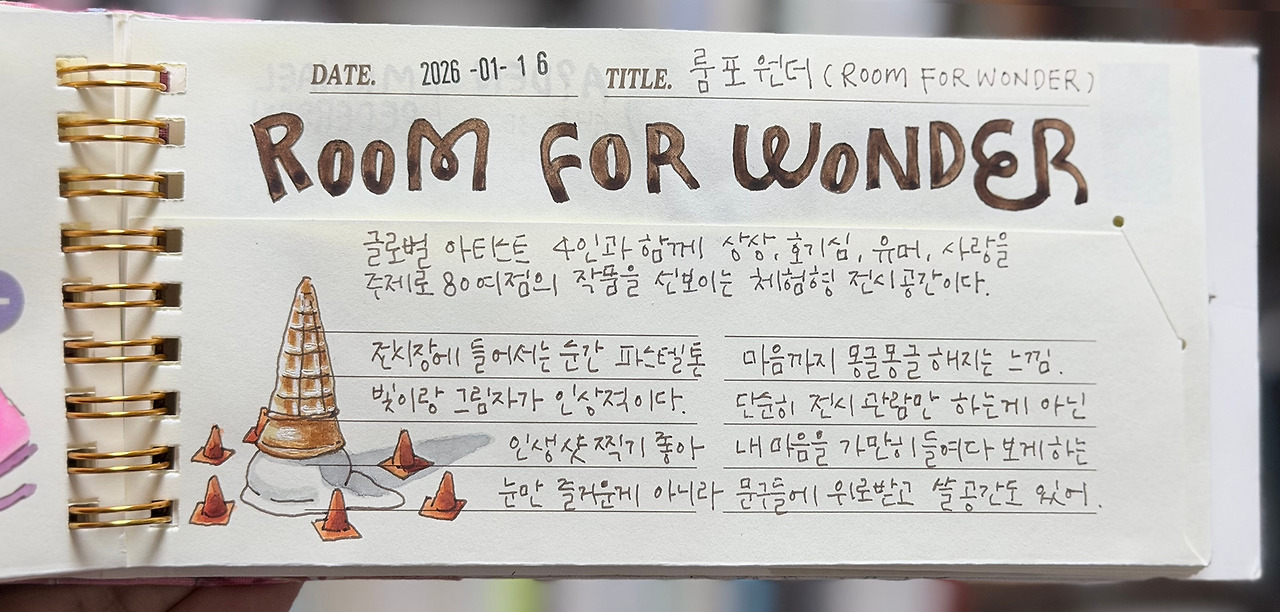 DATE. 2026-01-16 TITLE. 룸포원더 (ROOM FOR WONDER)
ROOM FOR WONDER
글로벌 아티스트 4인과 함께 상상, 호기심, 유머, 사랑을
주제로 80여점의 작품을 선보이는 체험형 전시공간이다.
전시장에 들어서는 순간 파스텔톤
빛이랑 그림자가 인상적이다.
인생샷 찍기 좋아
눈만 즐거운게 아니라
마음까지 몽글몽글해지는 느낌.
단순히 전시 관람만 하는게 아닌
내 마음을 가만히 들여다 보게하는
문구들에 위로받고 쓸 공간도 있어.